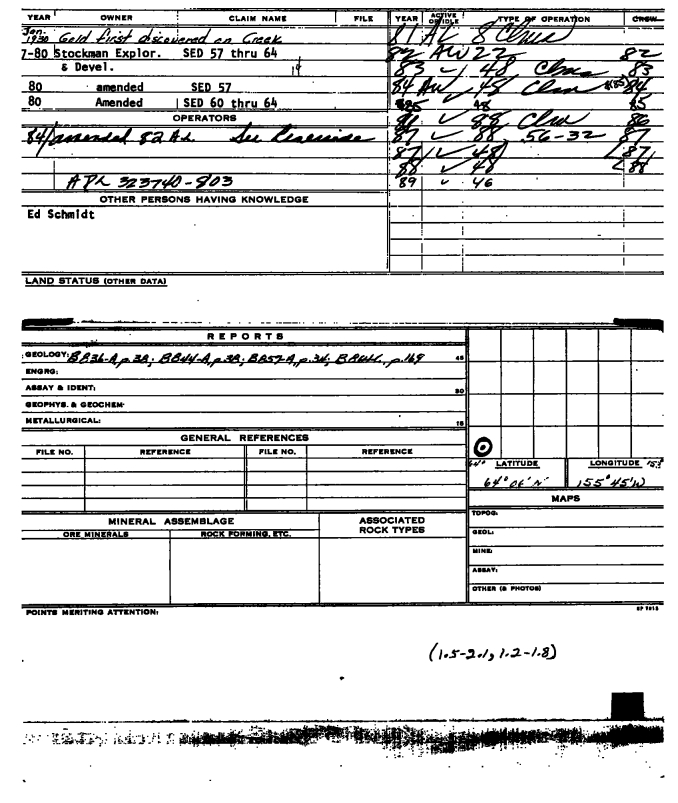 YEAR OWNER CLAIM NAME FILE YEAR ACTIVE OR IDLE TYPE OF OPERATION CREW
Jan. 1930 Gold first discovered on Creek 81 AL 8 Clms
7-80 Stockman Explor. SED 57 thru 64 82 AW 22 82
& Devel. 19 83 ✓ 48 Clms 83
80 amended SED 57 84 AW ✓ 48 Clm 84
80 Amended SED 60 thru 64 85 ✓ 48 85
OPERATORS ✓ 88 Clm 86
84/amended 82 AL See 87 ✓ 88, 56-32 87
87 ✓ 48 87
88 ✓ 48 88
APL 323740-803 89 ✓ 46
OTHER PERSONS HAVING KNOWLEDGE
Ed Schmidt
LAND STATUS (OTHER DATA)
REPORTS
GEOLOGY: BR36-A, p.38; BR44-A, p.38; BR57-A, p.34; p.169 45
ENGRG:
ASSAY & IDENT: 30
GEOPHYS. & GEOCHEM.
METALLURGICAL: 15
GENERAL REFERENCES
FILE NO. REFERENCE FILE NO. REFERENCE
64° LATITUDE LONGITUDE 153°
64°06'N 155°45'W
MAPS
MINERAL ASSEMBLAGE ASSOCIATED ROCK TYPES
ORE MINERALS ROCK FORMING, ETC.
TOPOG:
GEOL:
MINE:
ASSAY:
OTHER (& PHOTOS)
POINTS MERITING ATTENTION:
(1.5-2.1, 1.2-1.8)